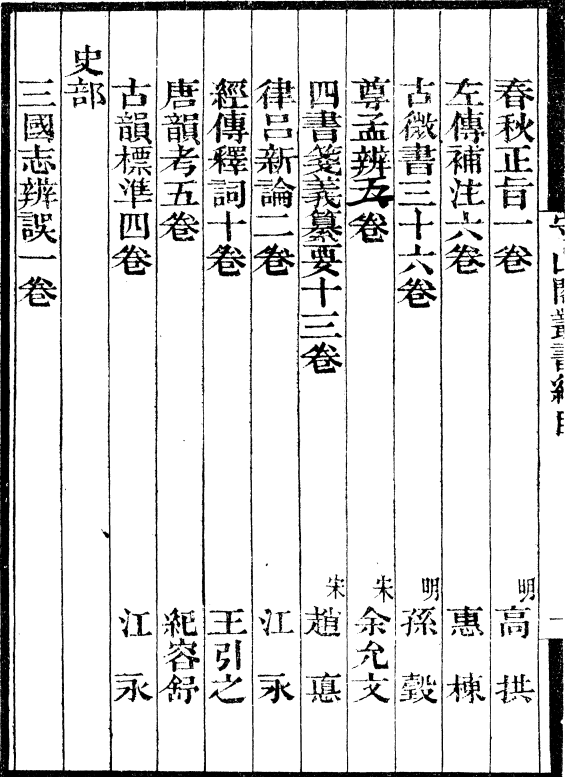 守山閣叢書總目 一
春秋正旨一卷 明 高拱
左傳補注六卷 惠棟
古微書三十六卷 明 孫瑴
尊孟辨五卷 宋 余允文
四書箋義纂要十三卷 宋 趙悳
律呂新論二卷 江永
經傳釋詞十卷 王引之
唐韻考五卷 紀容舒
古韻標準四卷 江永
史部
三國志辨誤一卷